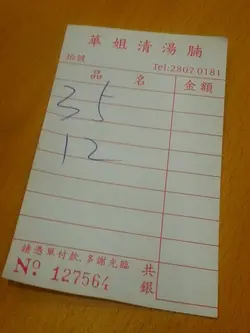 華姐清湯腩
枱號 Tel:2807 0181
品名 金額
35
12
請憑單付款,多謝光臨 共銀
Nº 127564